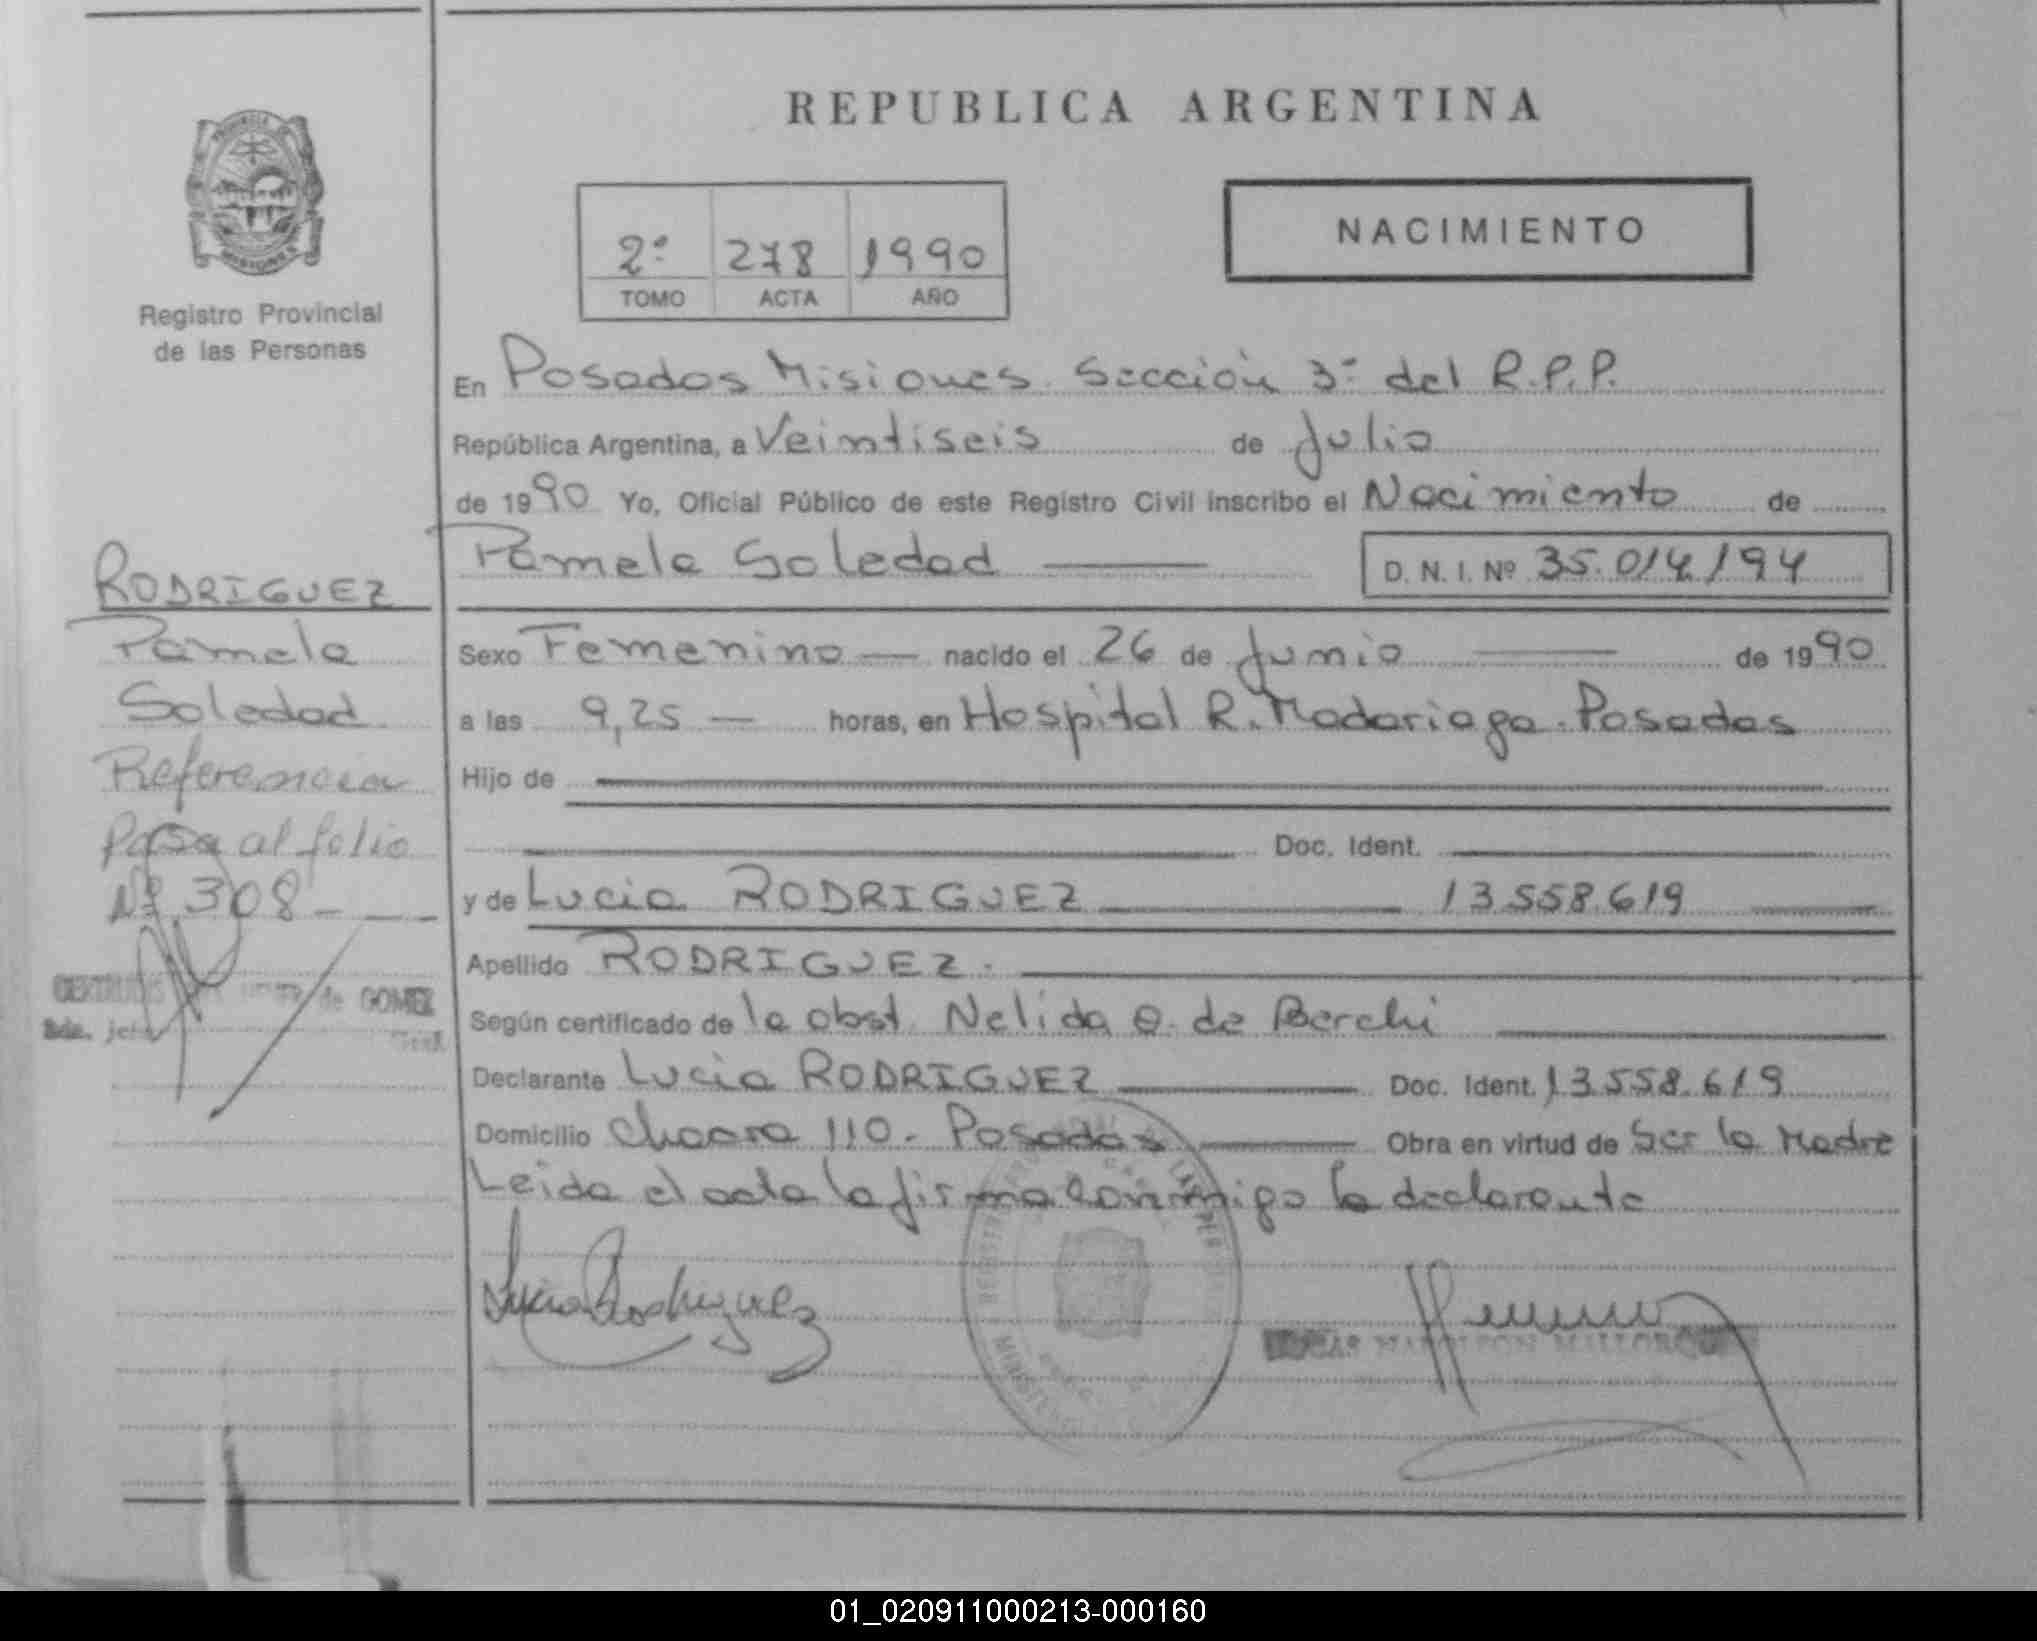 REPUBLICA ARGENTINA
PROVINCIA DE MISIONES
Registro Provincial
de las Personas
2º 278 1990
TOMO ACTA AÑO
NACIMIENTO
En Posadas Misiones. Sección 3º del R.P.P.
República Argentina, a Veintiseis de Julio
de 1990 Yo, Oficial Público de este Registro Civil inscribo el Nacimiento de
Pamela Soledad D. N. I. Nº 35.014.194
RODRIGUEZ
Pamela
Soledad
Referencia
Pasa al folio
Nº 308
de GOMEZ
Sexo Femenino nacido el 26 de Junio de 1990
a las 9,25 horas, en Hospital R. Madariaga. Posadas
Hijo de
Doc. Ident.
y de Lucia RODRIGUEZ 13.558.619
Apellido RODRIGUEZ.
Según certificado de la obst. Nelida O. de Berchi
Declarante Lucia RODRIGUEZ Doc. Ident. 13.558.619
Domicilio Chacra 110. Posadas Obra en virtud de Ser la Madre
Leida el acta la firma conmigo la declarante
Lucia Rodriguez
LUCAS NAPOLEON MALLORQUIN
01_020911000213-000160